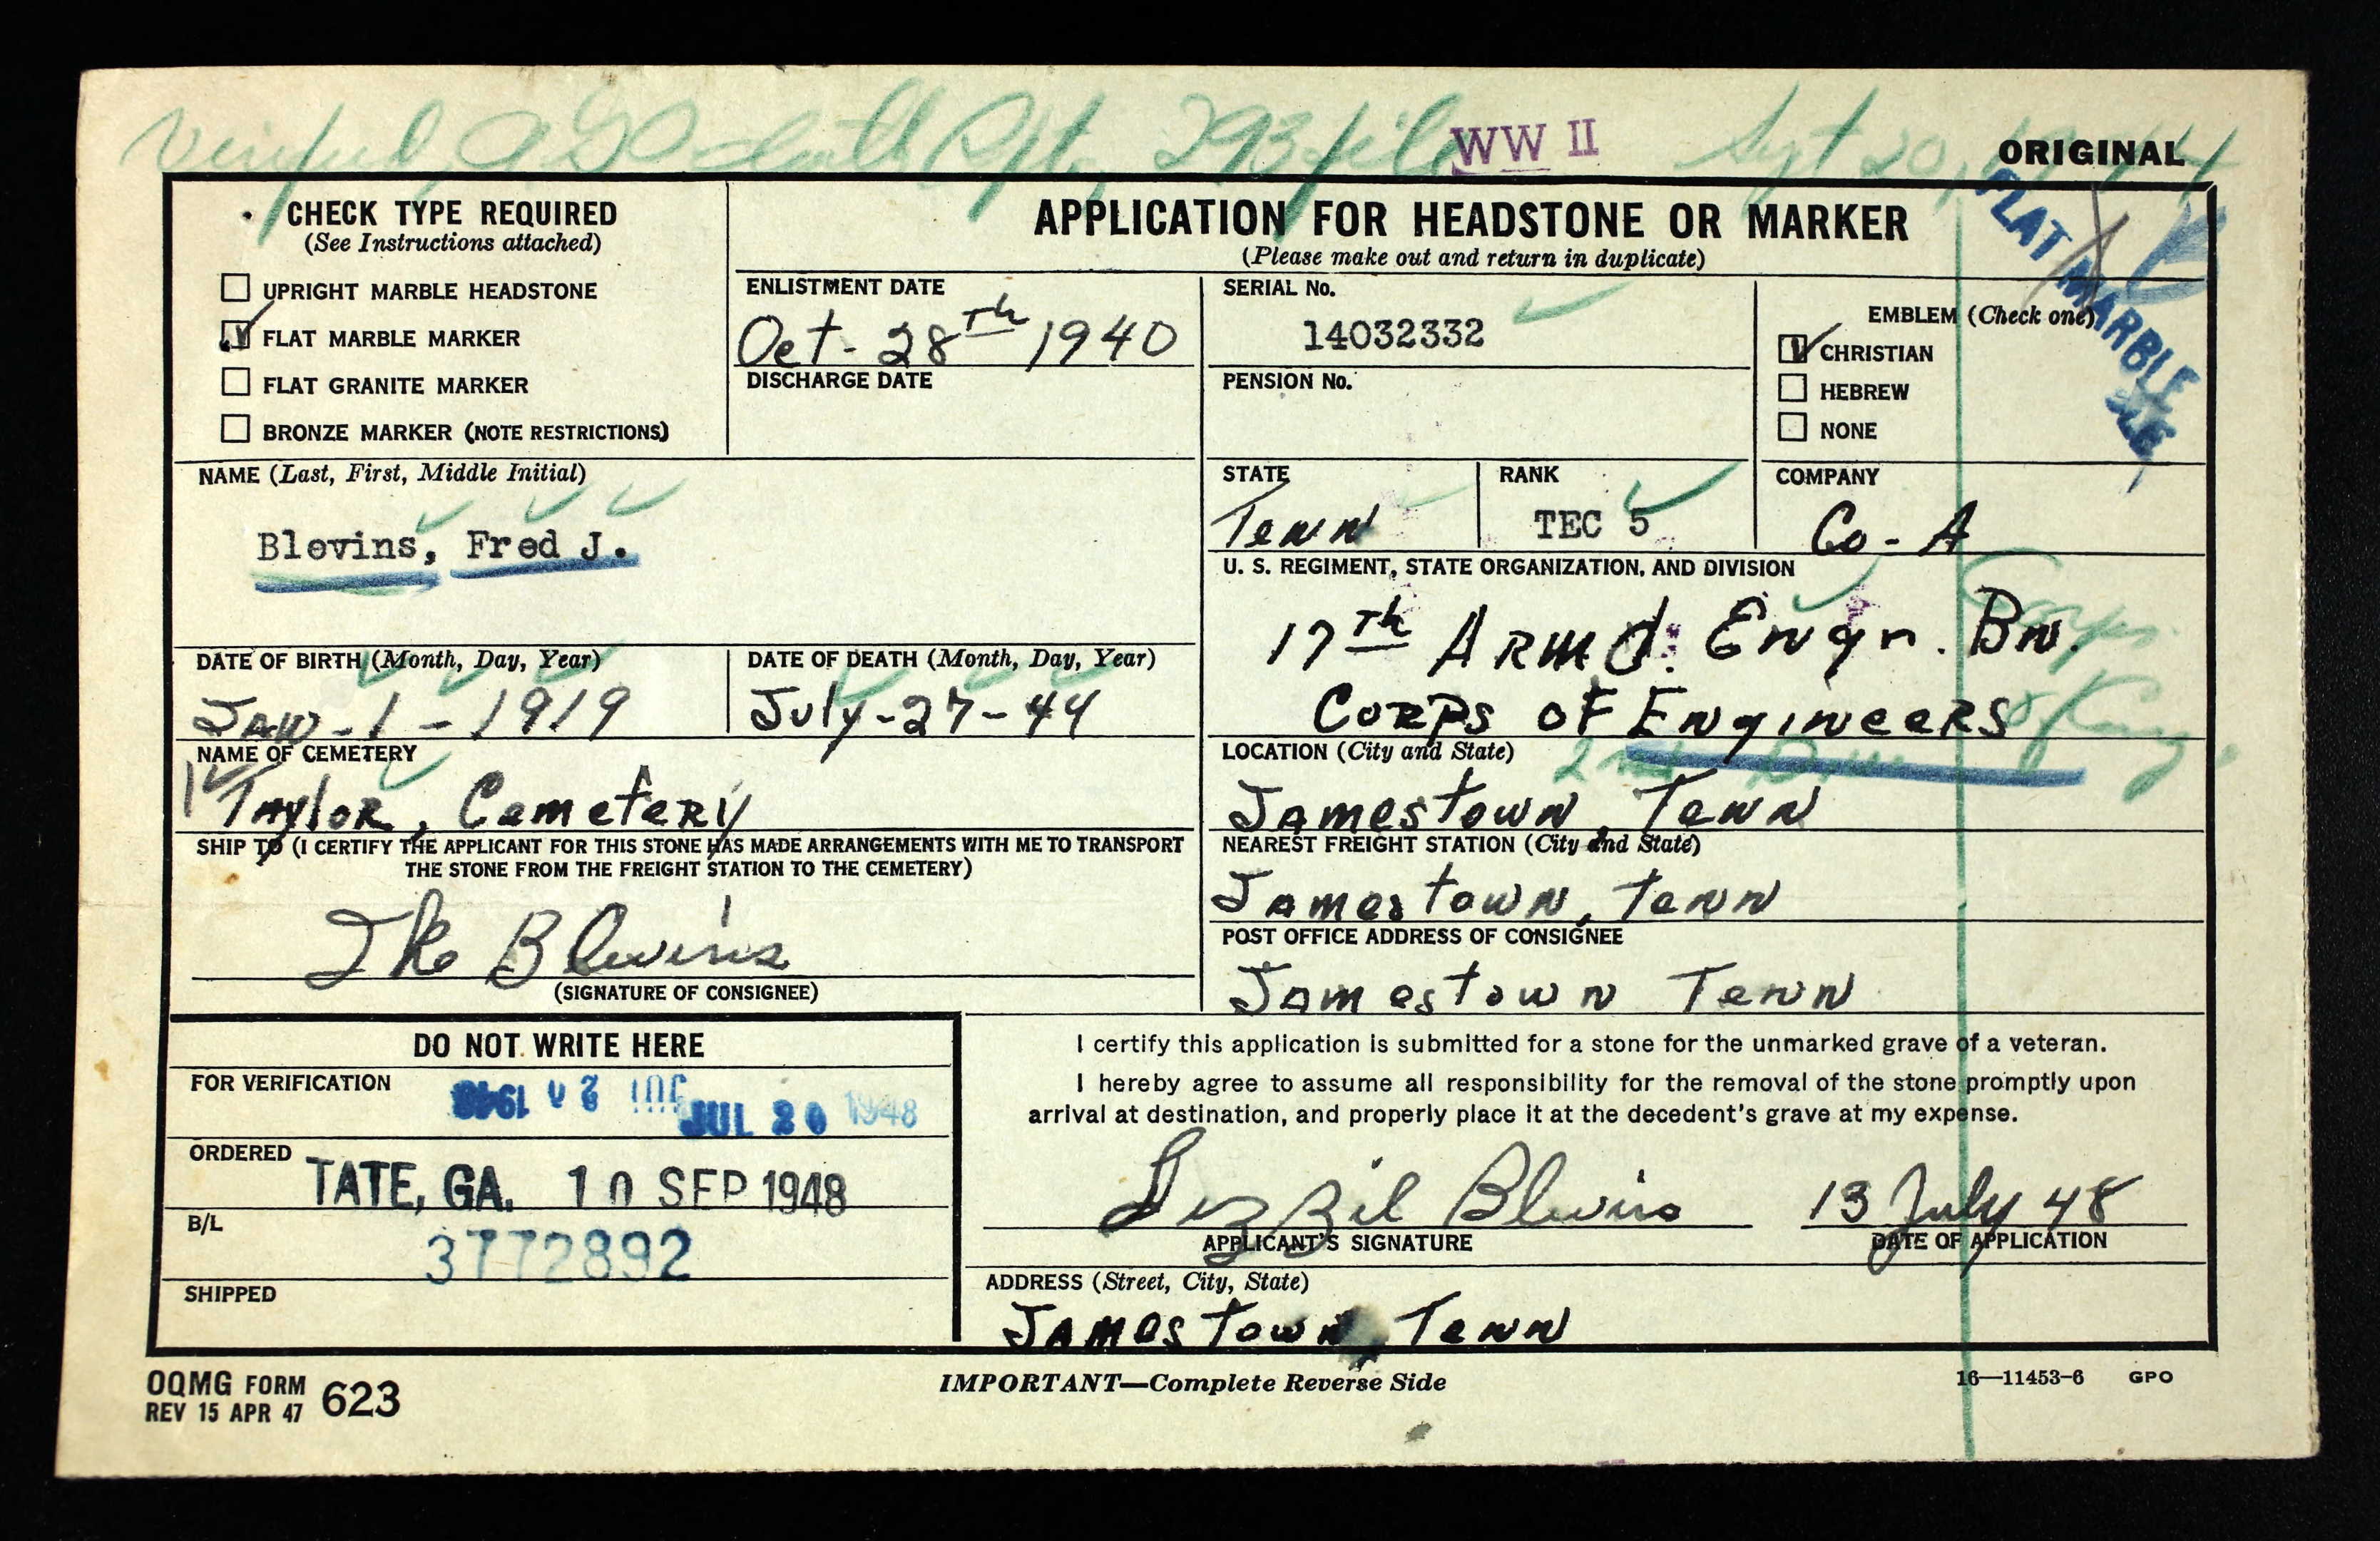 Verified AGO death Rpt, 293 file WW II Sept 20, 1944
ORIGINAL
CHECK TYPE REQUIRED
(See Instructions attached)
UPRIGHT MARBLE HEADSTONE
FLAT MARBLE MARKER
FLAT GRANITE MARKER
BRONZE MARKER (NOTE RESTRICTIONS)
APPLICATION FOR HEADSTONE OR MARKER
(Please make out and return in duplicate)
FLAT MARBLE
ENLISTMENT DATE
Oct-28Th 1940
DISCHARGE DATE
SERIAL No.
14032332
PENSION No.
EMBLEM (Check one)
CHRISTIAN
HEBREW
NONE
NAME (Last, First, Middle Initial)
Blevins, Fred J.
STATE
Tenn
RANK
TEC 5
COMPANY
Co-A
U. S. REGIMENT, STATE ORGANIZATION, AND DIVISION
17Th ARMd. Engr. Bn.
CORPS OF ENgiNeeRS
DATE OF BIRTH (Month, Day, Year)
JAN-1-1919
DATE OF DEATH (Month, Day, Year)
July-27-44
NAME OF CEMETERY
TAyloR, CemeteRy
LOCATION (City and State)
2nd
Jamestown, Tenn
SHIP TO (I CERTIFY THE APPLICANT FOR THIS STONE HAS MADE ARRANGEMENTS WITH ME TO TRANSPORT
THE STONE FROM THE FREIGHT STATION TO THE CEMETERY)
Ike Blevins
(SIGNATURE OF CONSIGNEE)
NEAREST FREIGHT STATION (City and State)
Jamestown, Tenn
POST OFFICE ADDRESS OF CONSIGNEE
Jamestown Tenn
DO NOT WRITE HERE
FOR VERIFICATION
JUL 20 1948
JUL 20 1948
ORDERED
TATE, GA. 10 SEP 1948
B/L
3772892
SHIPPED
I certify this application is submitted for a stone for the unmarked grave of a veteran.
I hereby agree to assume all responsibility for the removal of the stone promptly upon
arrival at destination, and properly place it at the decedent's grave at my expense.
Blevins 13 July 48
APPLICANT'S SIGNATURE
DATE OF APPLICATION
ADDRESS (Street, City, State)
JAMesTown, Tenn
OQMG FORM 623
REV 15 APR 47
IMPORTANT—Complete Reverse Side
16—11453-6 GPO